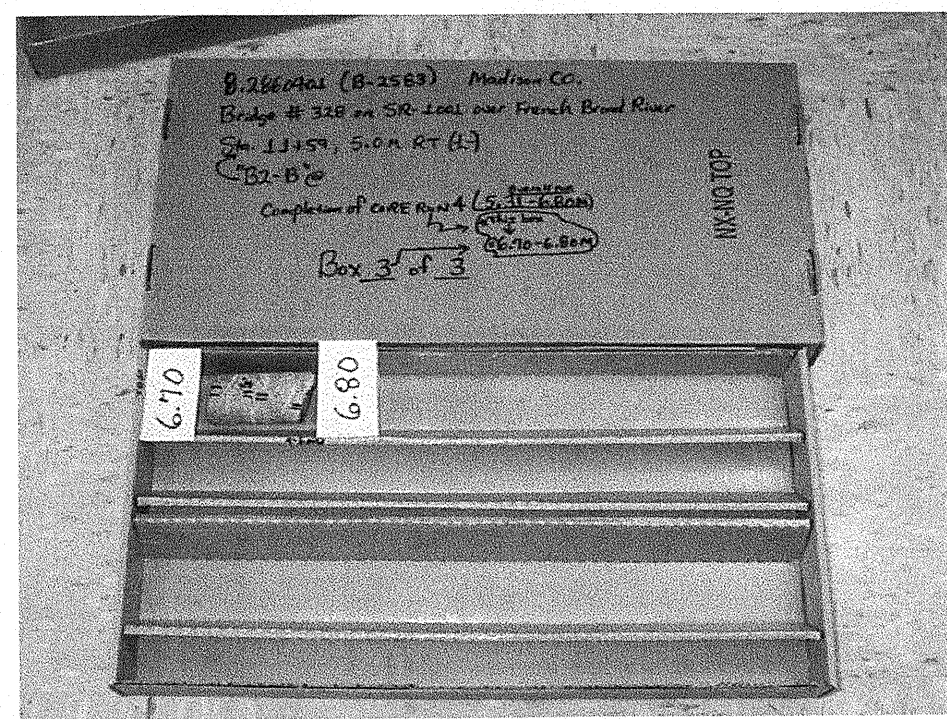 8.2860401 (B-2583) Madison CO.
Bridge # 328 on SR-1001 over French Broad River
Sta. 11+59, 5.0 M RT (L-)
"B2-B"
Completion of CORE RUN 4 (5.31-6.80M)
(6.70-6.80M)
Box 3 of 3
NX-NQ TOP
6.70
6.80